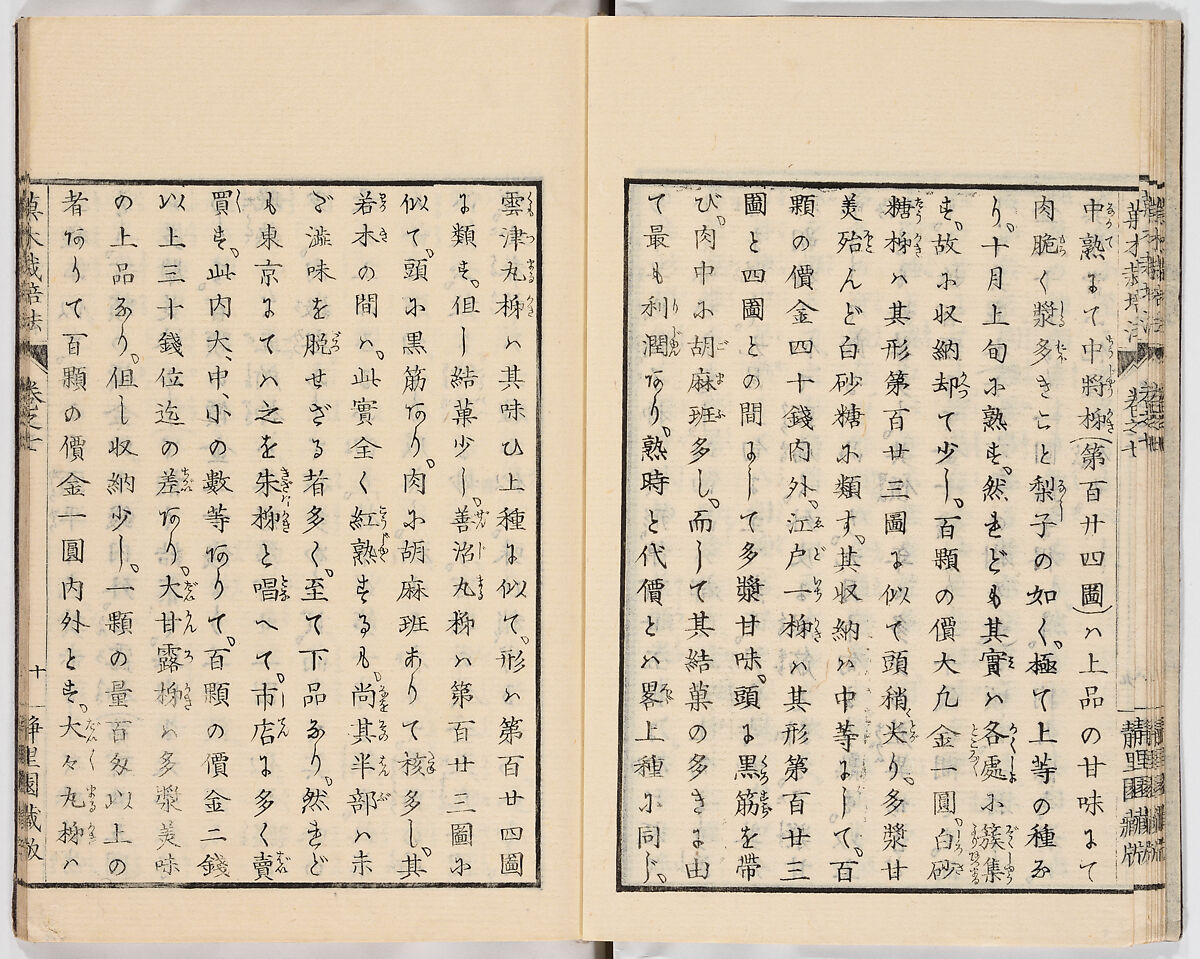 中熟にて中將柹(第百廿四圖)ハ上品の甘味にて
肉脆く漿多きこと梨子の如く。極て上等の種な
り。十月上旬に熟す。然れども其實ハ各處に簇集
す。故に収納却て少し。百顆の價大凡金一圓。白砂
糖柹ハ其形第百廿三圖に似て頭稍尖り。多漿甘
美殆んど白砂糖に類す。其収納ハ中等にして。百
顆の價金四十錢内外。江戸一柹ハ其形第百廿三
圖と四圖との間にして多漿甘味。頭に黒筋を帶
び。肉中に胡麻斑多し。而して其結菓の多きに由
て最も利潤あり。熟時と代價とハ畧上種に同じ。
雲津丸柹ハ其味ひ上種に似て。形ハ第百廿四圖
に類す。但し結菓少し。善治丸柹ハ第百廿三圖に
似て。頭に黒筋あり。肉に胡麻斑ありて核多し。其
若木の間ハ。此實全く紅熟するも。尚其半部ハ未
だ澁味を脱せざる者多く。至て下品なり。然れど
も東京にてハ之を朱柹と唱へて。市店に多く賣
買す。此内大、中、小の數等ありて。百顆の價金二錢
以上三十錢位迄の差あり。大甘露柹ハ多漿美味
の上品なり。但し収納少し。一顆の量百匁以上の
者ありて百顆の價金一圓内外とす。大々丸柹ハ
菓木栽培法
卷之七
十
靜里園藏版